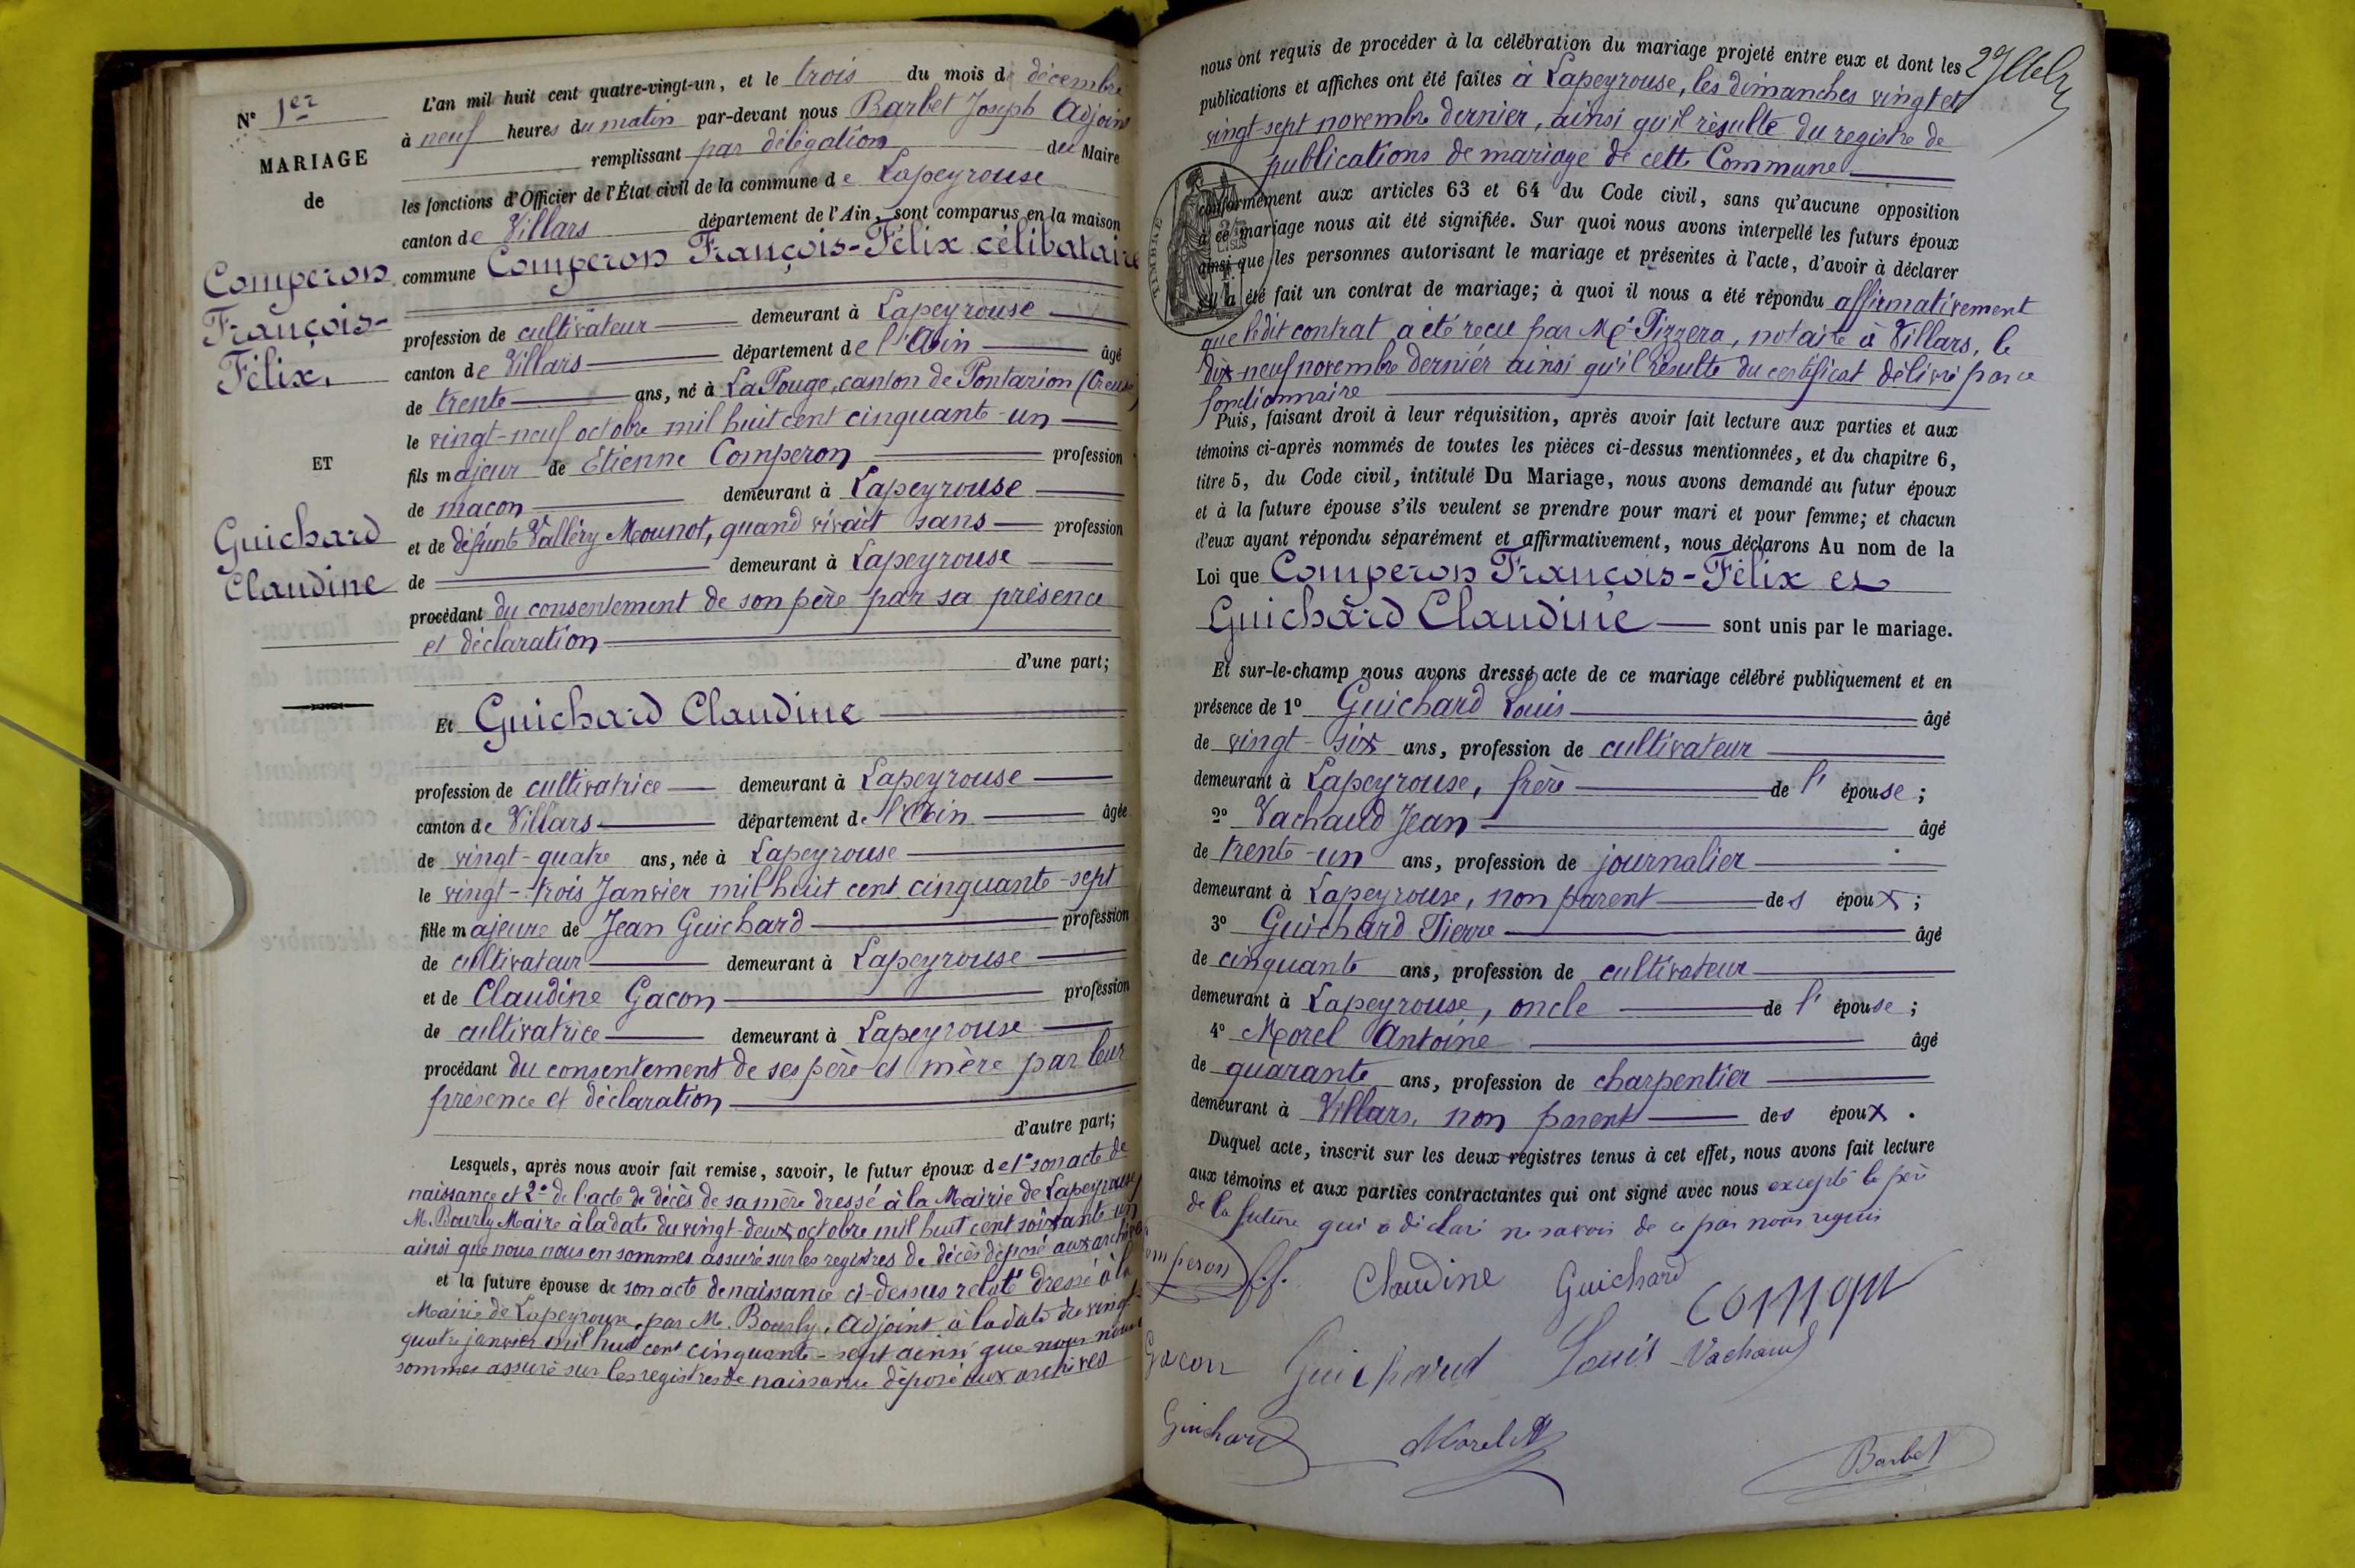 N° 1er
MARIAGE
de
Comperon
François-
Félix,
ET
Guichard
Claudine
L'an mil huit cent quatre-vingt-un, et le trois du mois de décembre
à neuf heures du matin par-devant nous Barbet Joseph Adjoint
remplissant par délégation du Maire
les fonctions d'Officier de l'État civil de la commune de Lapeyrouse
canton de Villars département de l'Ain, sont comparus en la maison
commune Comperon François-Félix célibataire
profession de cultivateur demeurant à Lapeyrouse
canton de Villars département de l'Ain âgé
de trente ans, né à La Pouge, canton de Pontarion (Creuse)
le vingt-neuf octobre mil huit cent cinquante-un
fils majeur de Etienne Comperon profession
de macon demeurant à Lapeyrouse
et de défunte Valléry Mounot, quand vivait sans profession
de demeurant à Lapeyrouse
procédant du consentement de son père par sa présence
et déclaration
d'une part;
Et Guichard Claudine
profession de cultivatrice demeurant à Lapeyrouse
canton de Villars département de l'Ain âgée
de vingt-quatre ans, née à Lapeyrouse
le vingt-trois Janvier mil huit cent cinquante-sept
fille majeure de Jean Guichard profession
de cultivateur demeurant à Lapeyrouse
et de Claudine Gacon profession
de cultivatrice demeurant à Lapeyrouse
procédant du consentement de ses père et mère par leur
présence et déclaration
d'autre part;
Lesquels, après nous avoir fait remise, savoir, le futur époux de 1° son acte de
naissance et 2° de l'acte de décès de sa mère dressé à la Mairie de Lapeyrouse
M. Bourly Maire à la date du vingt-deux octobre mil huit cent soixante-un
ainsi que nous nous en sommes assuré sur les registres de décès déposé aux archives
et la future épouse de son acte de naissance ci-dessus relaté dressé à la
Mairie de Lapeyrouse, par M. Bourly, adjoint à la date du vingt-
quatre janvier mil huit cent cinquante-sept ainsi que nous nous
sommes assuré sur les registres de naissance déposé aux archives
nous ont requis de procéder à la célébration du mariage projeté entre eux et dont les
publications et affiches ont été faites à Lapeyrouse, les dimanches vingt et
vingt-sept novembre dernier, ainsi qu'il résulte du registre de
publications de mariage de cette Commune
TIMBRE
conformément aux articles 63 et 64 du Code civil, sans qu'aucune opposition
à ce mariage nous ait été signifiée. Sur quoi nous avons interpellé les futurs époux
ainsi que les personnes autorisant le mariage et présentes à l'acte, d'avoir à déclarer
s'il a été fait un contrat de mariage; à quoi il nous a été répondu affirmativement
que ledit contrat a été recu par Me Pizzera, notaire à Villars, le
dix-neuf novembre dernier ainsi qu'il résulte du certificat délivré par ce
fonctionnaire
Puis, faisant droit à leur réquisition, après avoir fait lecture aux parties et aux
témoins ci-après nommés de toutes les pièces ci-dessus mentionnées, et du chapitre 6,
titre 5, du Code civil, intitulé Du Mariage, nous avons demandé au futur époux
et à la future épouse s'ils veulent se prendre pour mari et pour femme; et chacun
d'eux ayant répondu séparément et affirmativement, nous déclarons Au nom de la
Loi que Comperon François-Félix et
Guichard Claudine sont unis par le mariage.
Et sur-le-champ nous avons dressé acte de ce mariage célébré publiquement et en
présence de 1° Guichard Louis âgé
de vingt-six ans, profession de cultivateur
demeurant à Lapeyrouse, frère de l'épouse;
2° Vachaud Jean âgé
de trente-un ans, profession de journalier
demeurant à Lapeyrouse, non parent des époux;
3° Guichard Pierre âgé
de cinquante ans, profession de cultivateur
demeurant à Lapeyrouse, oncle de l'épouse;
4° Morel Antoine âgé
de quarante ans, profession de charpentier
demeurant à Villars, non parent des époux.
Duquel acte, inscrit sur les deux registres tenus à cet effet, nous avons fait lecture
aux témoins et aux parties contractantes qui ont signé avec nous excepté le père
de la future qui a déclaré ne savoir de ce par nous requis
mperon f.f. Claudine Guichard
Gacon Guichard Louis Vachaud
Guichard Morel A Barbet